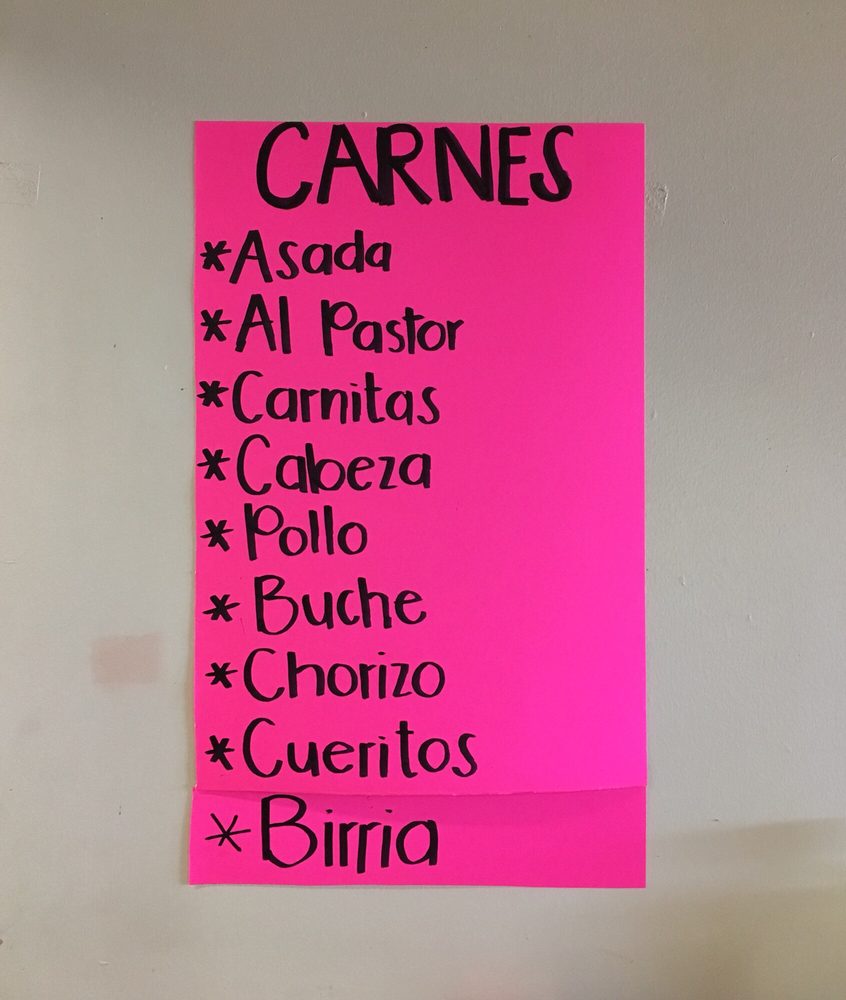 CARNES
*Asada
*Al Pastor
*Carnitas
*Cabeza
*Pollo
*Buche
*Chorizo
*Cueritos
*Birria